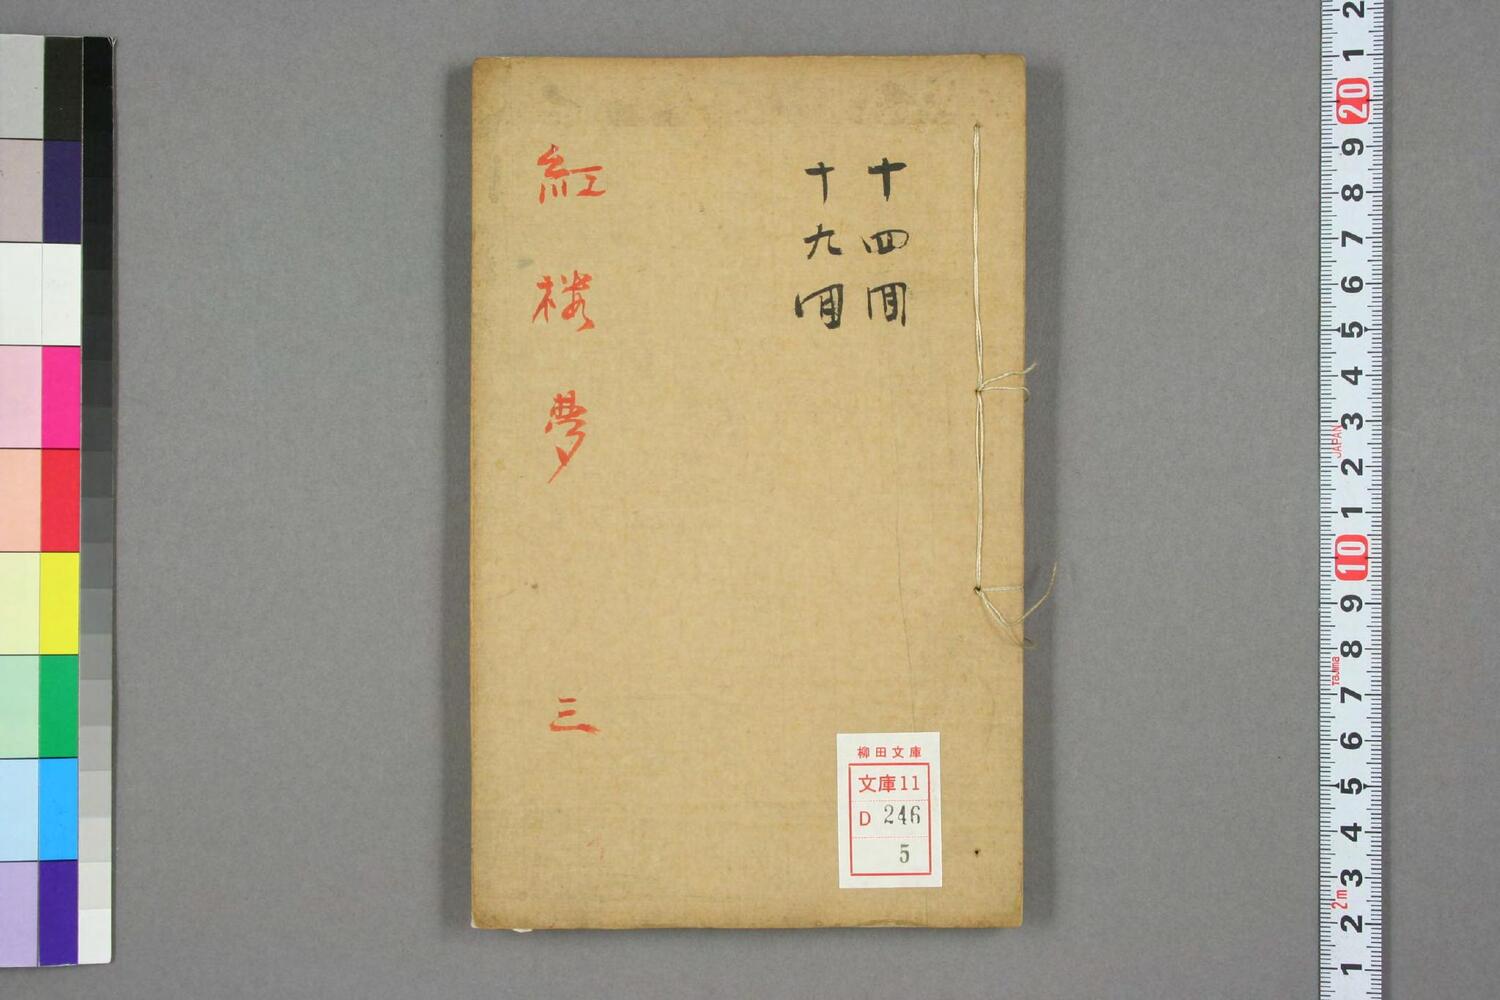 十四回
十九回
紅楼夢 三
柳田文庫
文庫11
D 246
5
2
1
20
9
8
7
6
5
4
3
2
1
10
9
8
7
6
5
4
3
2
1
JAPAN
Tajima
2m